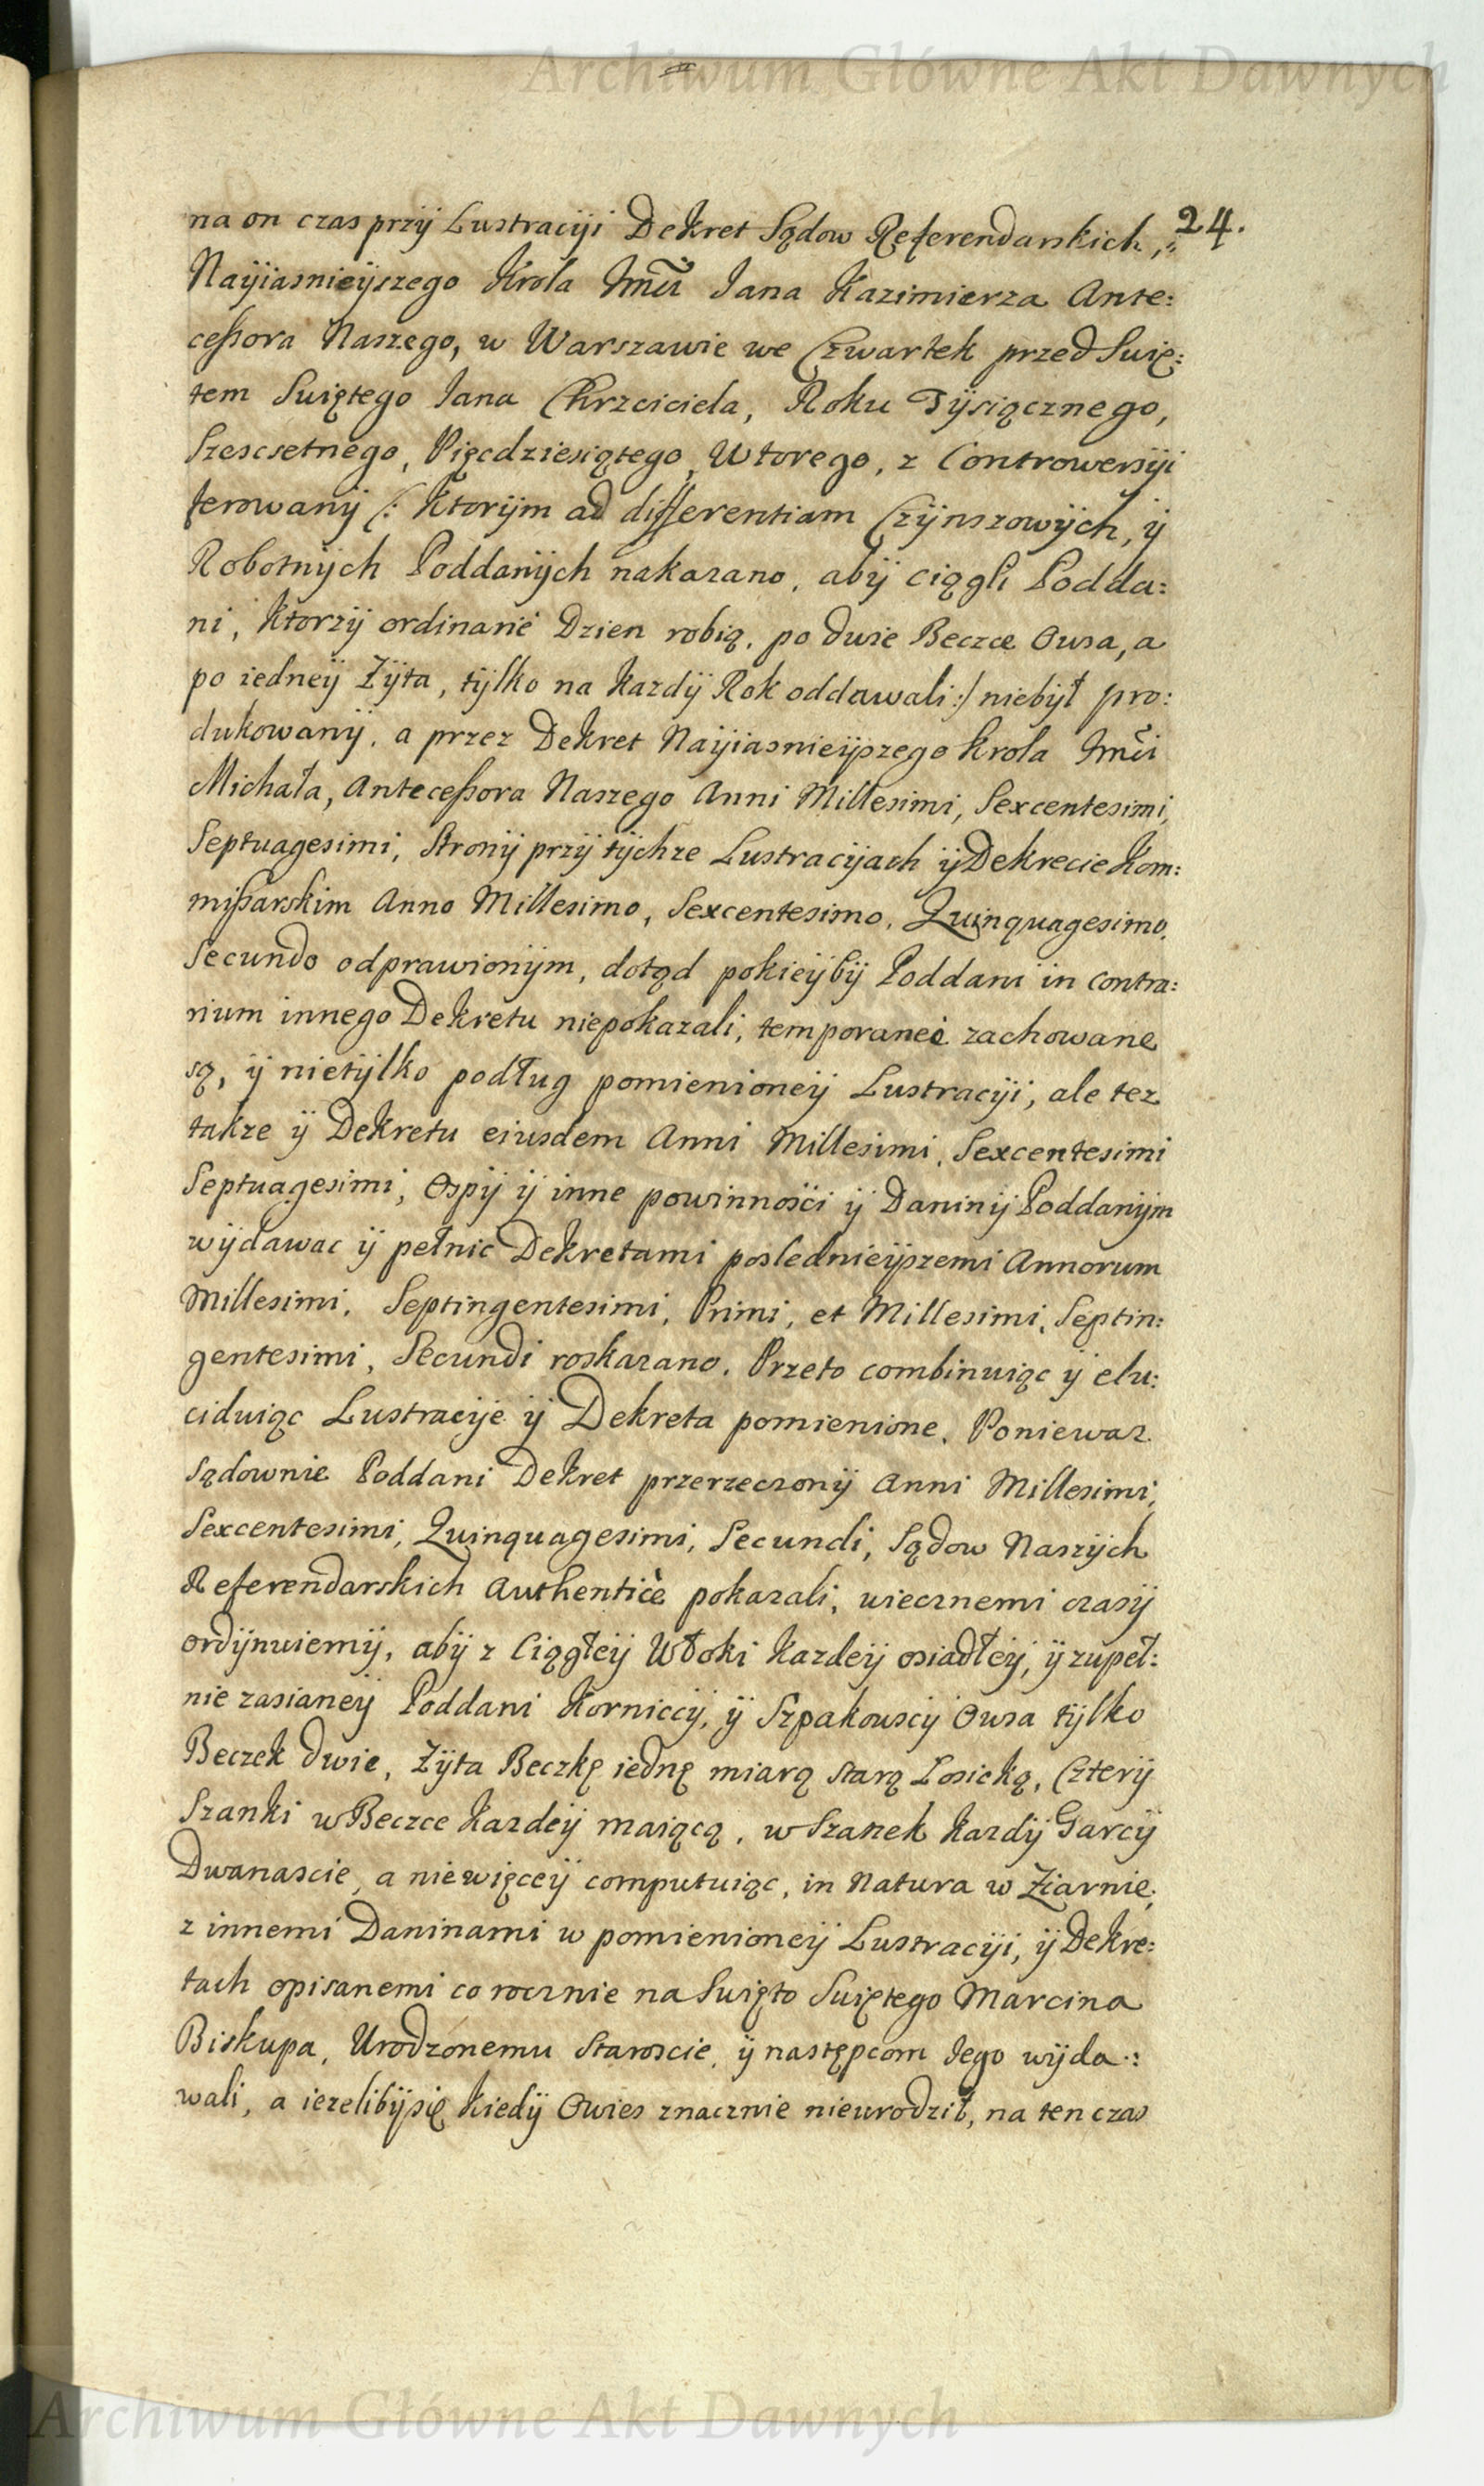 Archiwum Główne Akt Dawnych
24.
na on czas przÿ Lustracÿi Dekret Sądow Referendarskich,
Naÿiasnieÿszego Krola Jmći Jana Kazimierza Ante:
ceſsora Naszego, w Warszawie we Czwartek przed Swię:
tem Swiętego Jana Chrzciciela, Roku Tÿsiącznego,
Szescsetnego, Pięcdziesiątego, Wtorego, z Controwersÿi
ferowanÿ /: Ktorÿm ad differentiam Czÿnszowÿch, ÿ
Robotnÿch Poddanÿch nakazano, abÿ ciągli Podda:
ni, Ktorzÿ ordinariè Dzien robią, po dwie Beczce Owsa, a
po iedneÿ Zÿta, tÿlko na kazdÿ Rok oddawali :/ niebÿł pro:
dukowanÿ, a przez Dekret Naÿiasnieÿszego krola Jmći
Michała, Anteceſsora Naszego Anni Millesimi, Sexcentesimi,
Septuagesimi, Stronÿ przÿ tÿchze Lustracÿach ÿ Dekrecie Kom:
miſsarskim Anno Millesimo, Sexcentesimo, Quinquagesimo,
Secundo odprawionÿm, dotąd pokieÿbÿ Poddani in contra:
rium innego Dekretu niepokazali, temporaneè zachowane
są, ÿ nietÿlko podług pomienioneÿ Lustracÿi, ale tez
takze ÿ Dekretu eiusdem Anni Millesimi, Sexcentesimi
Septuagesimi, Ospÿ ÿ inne powinnośći ÿ Daninÿ Poddanÿm
wÿdawac ÿ pełnic Dekretami poslednieÿszemi Annorum
Millesimi, Septingentesimi, Primi, et Millesimi, Septin:
gentesimi, Secundi roskazano. Przeto combinuiąc ÿ elu:
ciduiąc Lustracÿe ÿ Dekreta pomienione, Poniewaz
sądownie Poddani Dekret przerzeczonÿ Anni Millesimi,
Sexcentesimi, Quinquagesimi, Secundi, Sądow Naszÿch
Referendarskich Authenticè pokazali, wiecznemi czasÿ
ordÿnuiemÿ, abÿ z Ciągłeÿ Włoki kazdeÿ osiadłeÿ, ÿ zupeł:
nie zasianeÿ Poddani Korniccÿ, ÿ Szpakowscÿ Owsa tÿlko
Beczek dwie, Zÿta Beczkę iednę miarą starą Losicką, Czterÿ
Szanki w Beczce kazdeÿ maiącą, w Szanek kazdÿ Garcÿ
Dwanascie, a niewięceÿ computuiąc, in Natura w Ziarnie,
z innemi Daninami w pomienioneÿ Lustracÿi, ÿ Dekre:
tach opisanemi co rocznie na Swięto Swiętego Marcina
Biskupa, Urodzonemu Staroscie, ÿ następcom Jego wÿda:
wali, a iezelibÿsię kiedÿ Owies znacznie nieurodził, na ten czas
Archiwum Główne Akt Dawnych